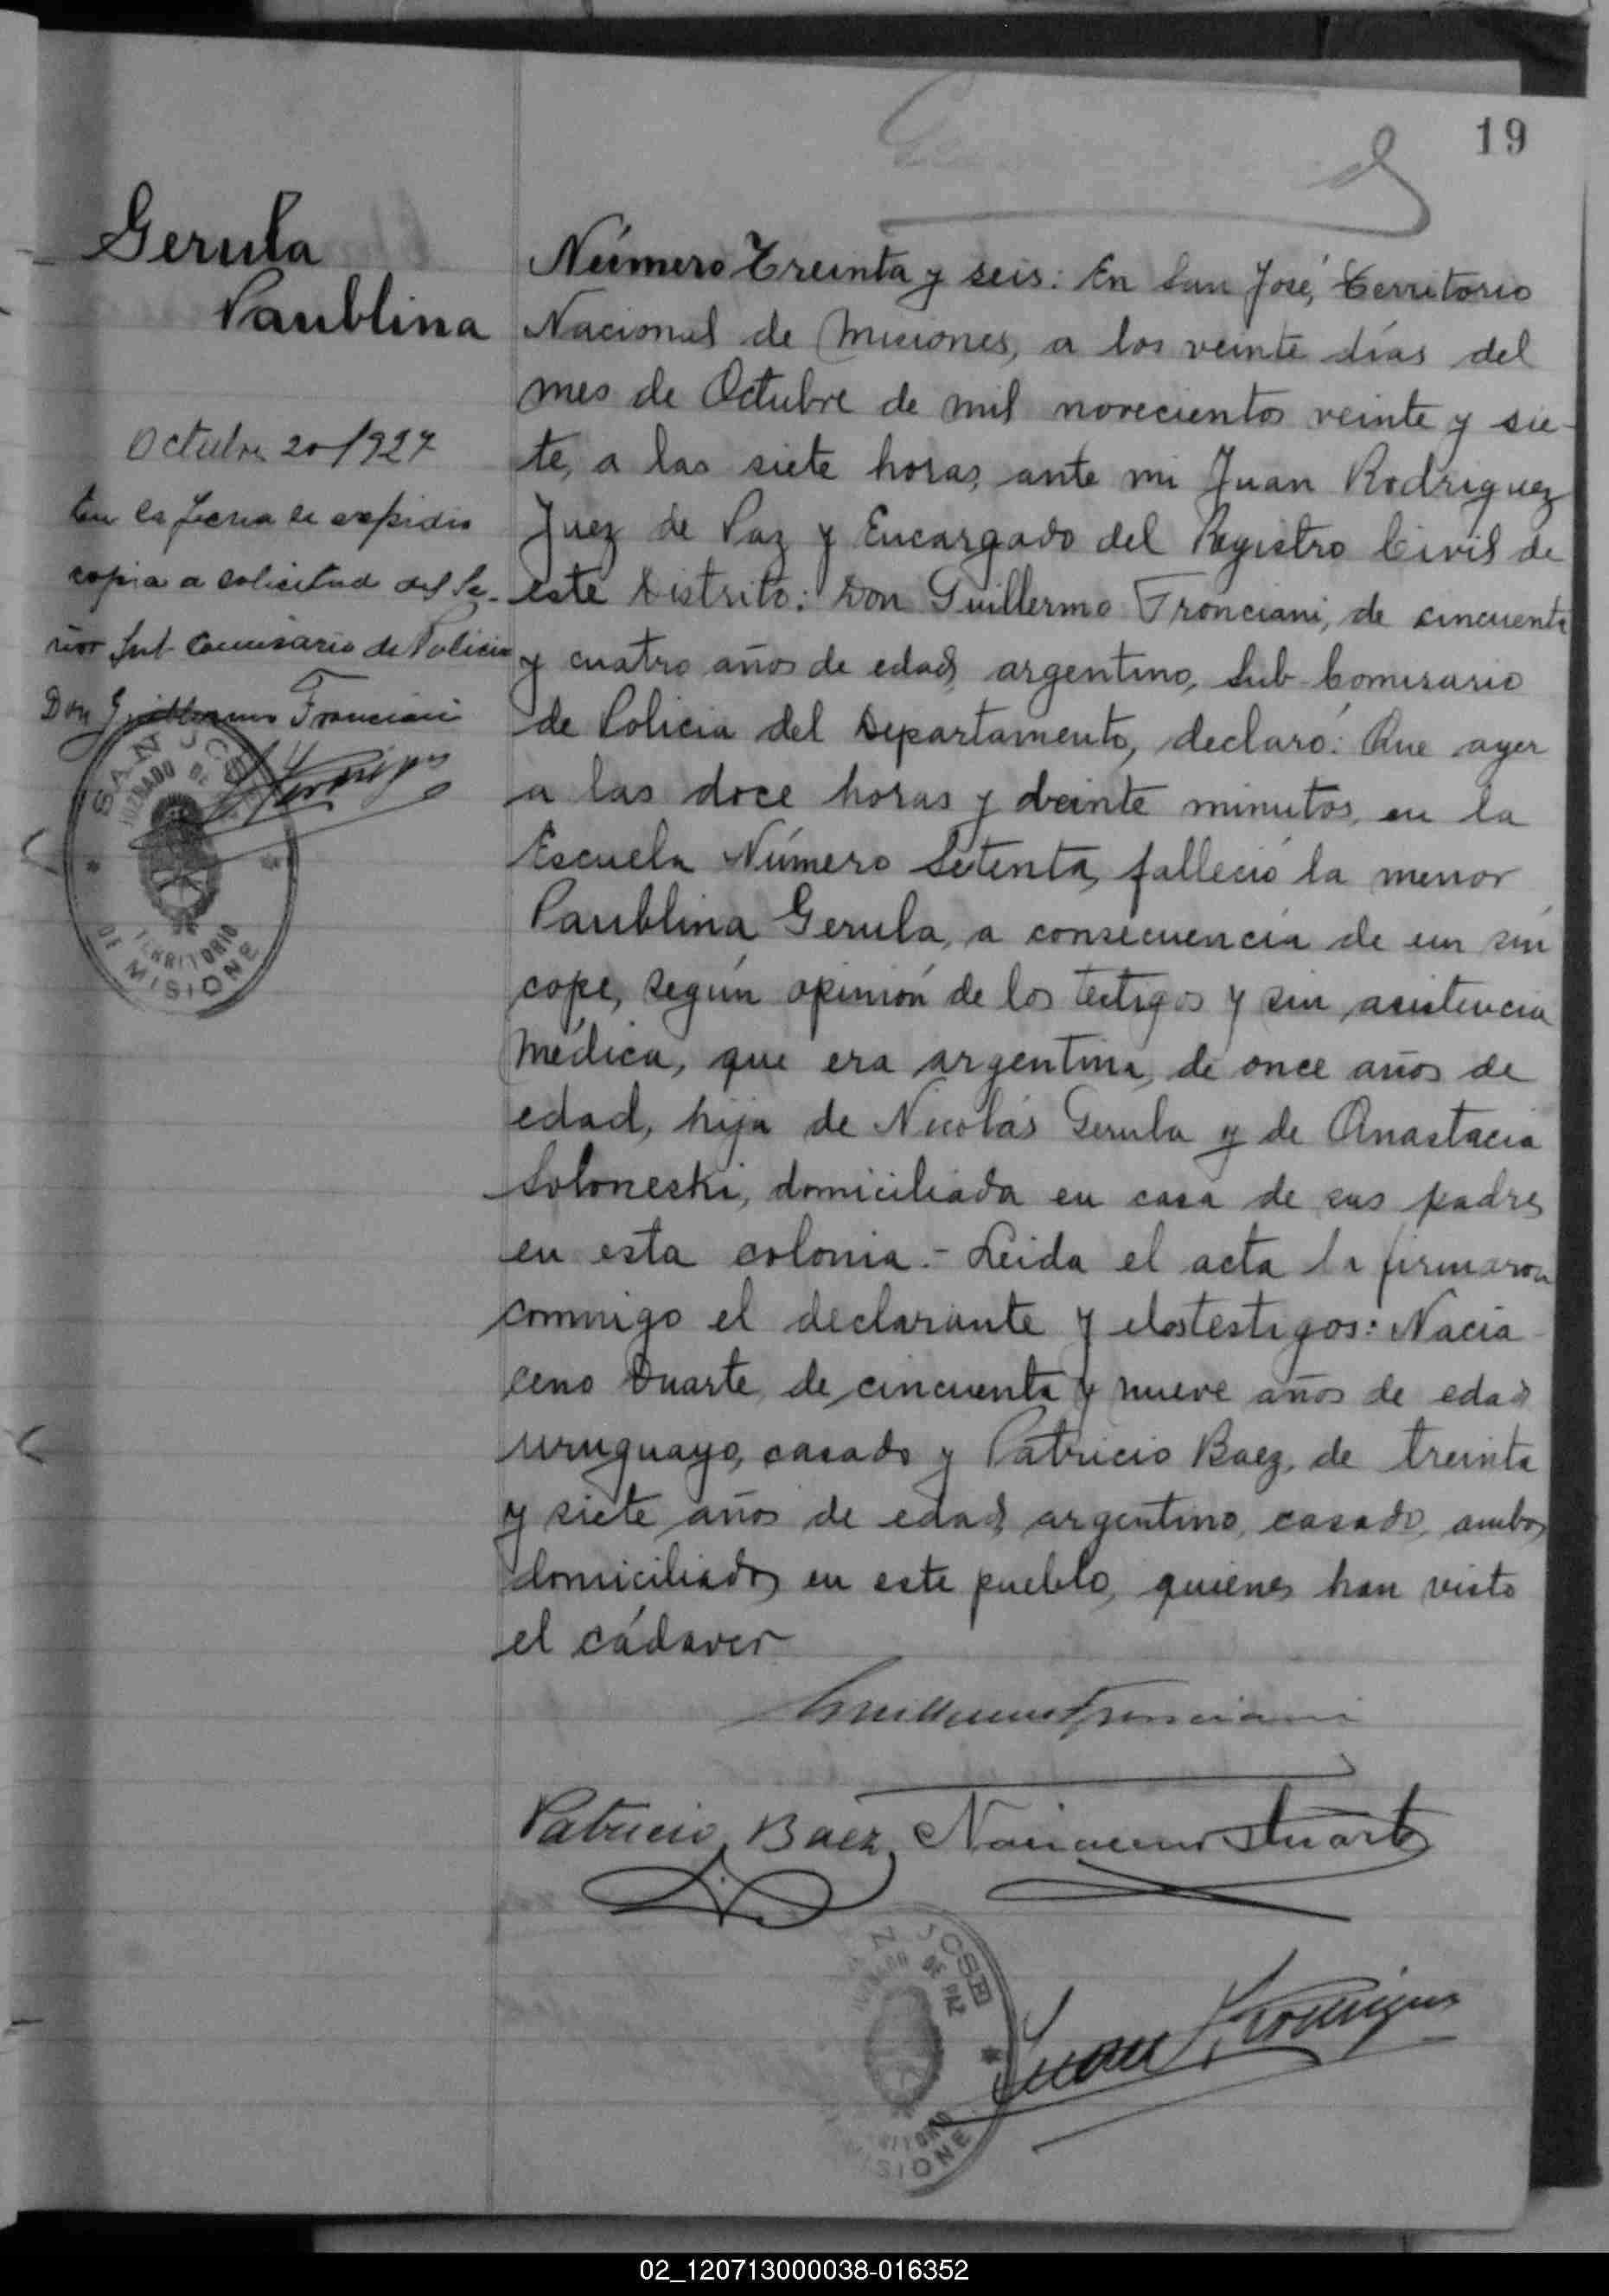 19
Gerula
Paublina
Octubre 20/927
En la fecha se expidio
copia a solicitud del Se-
ñor Sub Comisario de Policia
Don Guillermo Fronciani
SAN JOSE
JUZGADO DE PAZ
TERRITORIO
DE MISIONES
Número Treinta y seis: En San José, Territorio
Nacional de Misiones, a los veinte días del
mes de Octubre de mil novecientos veinte y sie-
te, a las siete horas, ante mi Juan Rodriguez
Juez de Paz y Encargado del Registro Civil de
este Distrito: Don Guillermo Fronciani, de cincuenta
y cuatro años de edad, argentino, Sub-Comisario
de Policia del Departamento, declaró: Que ayer
a las doce horas y veinte minutos, en la
Escuela Número Setenta, falleció la menor
Paublina Gerula, a consecuencia de un sín
cope, según opinión de los testigos y sin asistencia
médica, que era argentina, de once años de
edad, hija de Nicolás Gerula y de Anastacia
Soloneski, domiciliada en casa de sus padres
en esta colonia.- Leida el acta la firmaron
conmigo el declarante y los testigos: Nacia-
ceno Duarte, de cincuenta y nueve años de edad
uruguayo, casado y Patricio Baez, de treinta
y siete años de edad, argentino, casado, ambos
domiciliados en este pueblo, quienes han visto
el cádaver
Guillermo Fronciani
Patricio Baez Naciaceno Duarte
SAN JOSE
JUZGADO DE PAZ
TERRITORIO
MISIONES
Juan Rodriguez
02_120713000038-016352